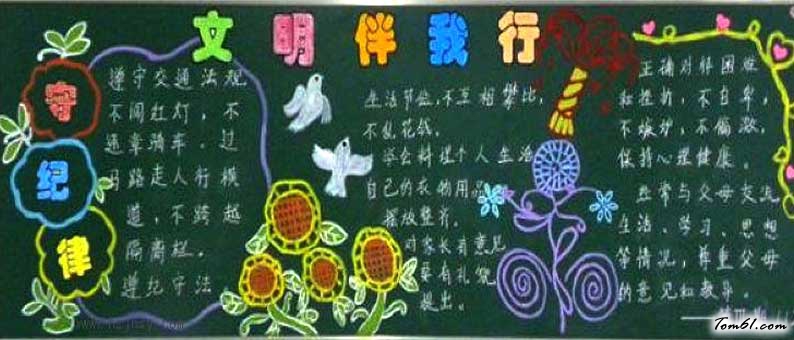 文明伴我行
守纪律
遵守交通法规
不闯红灯，不
违章骑车。过
马路走人行横
道，不跨越
隔离栏。
遵纪守法
生活节俭，不互相攀比，
不乱花钱。
学会料理个人生活
自己的衣物用品
摆放整齐。
对家长有意见
要有礼貌
提出。
正确对待困难
和挫折，不自卑，
不嫉妒，不偏激，
保持心理健康。
经常与父母交流
生活、学习、思想
等情况，尊重父母
的意见和教导。
Tom61.com